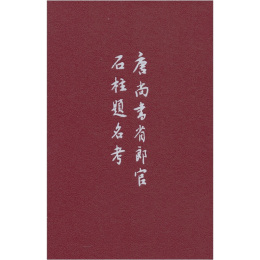 唐尚书省郎官
石柱题名考